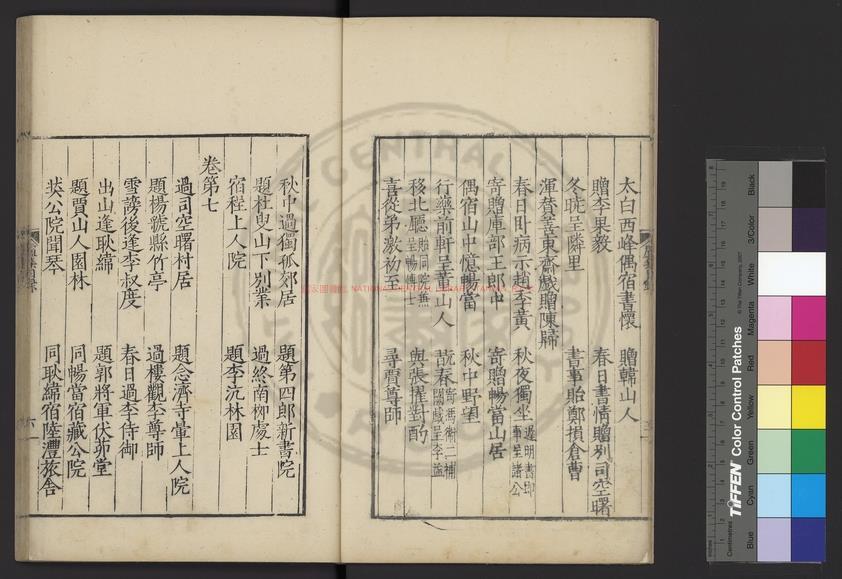 太白西峰偶宿書懷　贈韓山人
贈李果毅　春日書情贈別司空曙
冬晓呈隣里　書事貽鄭損倉曹
渾贊善東齋戲贈陳歸
春日卧病示趙季黄　秋夜獨坐
寄贈庫部王郎中　寄贈暢當山居
偶宿山中憶暢當　秋中野望
行藥前軒呈董山人　晚春
移北廳　與張擢對酌
喜從弟激初至　尋賈尊師
秋中過獨孤郊居　題第四郎新書院
題杜叟山下别業　過終南柳處士
宿程上人院　題李沆林園
卷第七
過司空曙村居　題念濟寺暈上人院
題楊虢縣竹亭　過樓觀李尊師
雪謗後逢李叔度　春日過李侍御
出山逢耿緯　題郭將軍伏茆堂
題賈山人園林　同暢當宿藏公院
英公院聞琴　同耿緯宿陸澧旅舍
TIFFEN Color Control Patches
© The Tiffen Company, 2007
Centimetres
Inches
Blue
Cyan
Green
Yellow
Red
Magenta
White
3/Color
Black